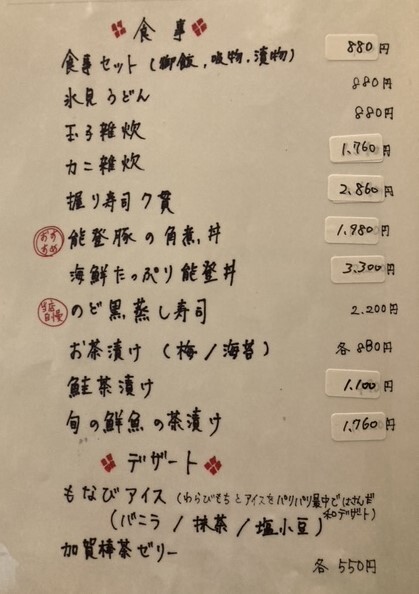 食事
食事セット（御飯，吸物，漬物） 880円
氷見うどん 880円
玉子雑炊 880円
カニ雑炊 1,760円
握り寿司7貫 2,860円
おすすめ 能登豚の角煮丼 1,980円
海鮮たっぷり能登丼 3,300円
当店自慢 のど黒蒸し寿司 2,200円
お茶漬け（梅/海苔） 各880円
鮭茶漬け 1,100円
旬の鮮魚の茶漬け 1,760円
デザート
もなびアイス（わらびもちとアイスをパリパリ最中ではさんだ
和デザート）
（バニラ/抹茶/塩小豆）
加賀棒茶ゼリー
各550円